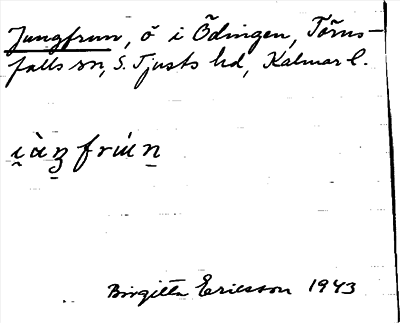 Jungfrun, ö i Ödingen, Törns-
falls sn, S. Tjusts hd, Kalmar l.
Birgitta Ericsson 1943